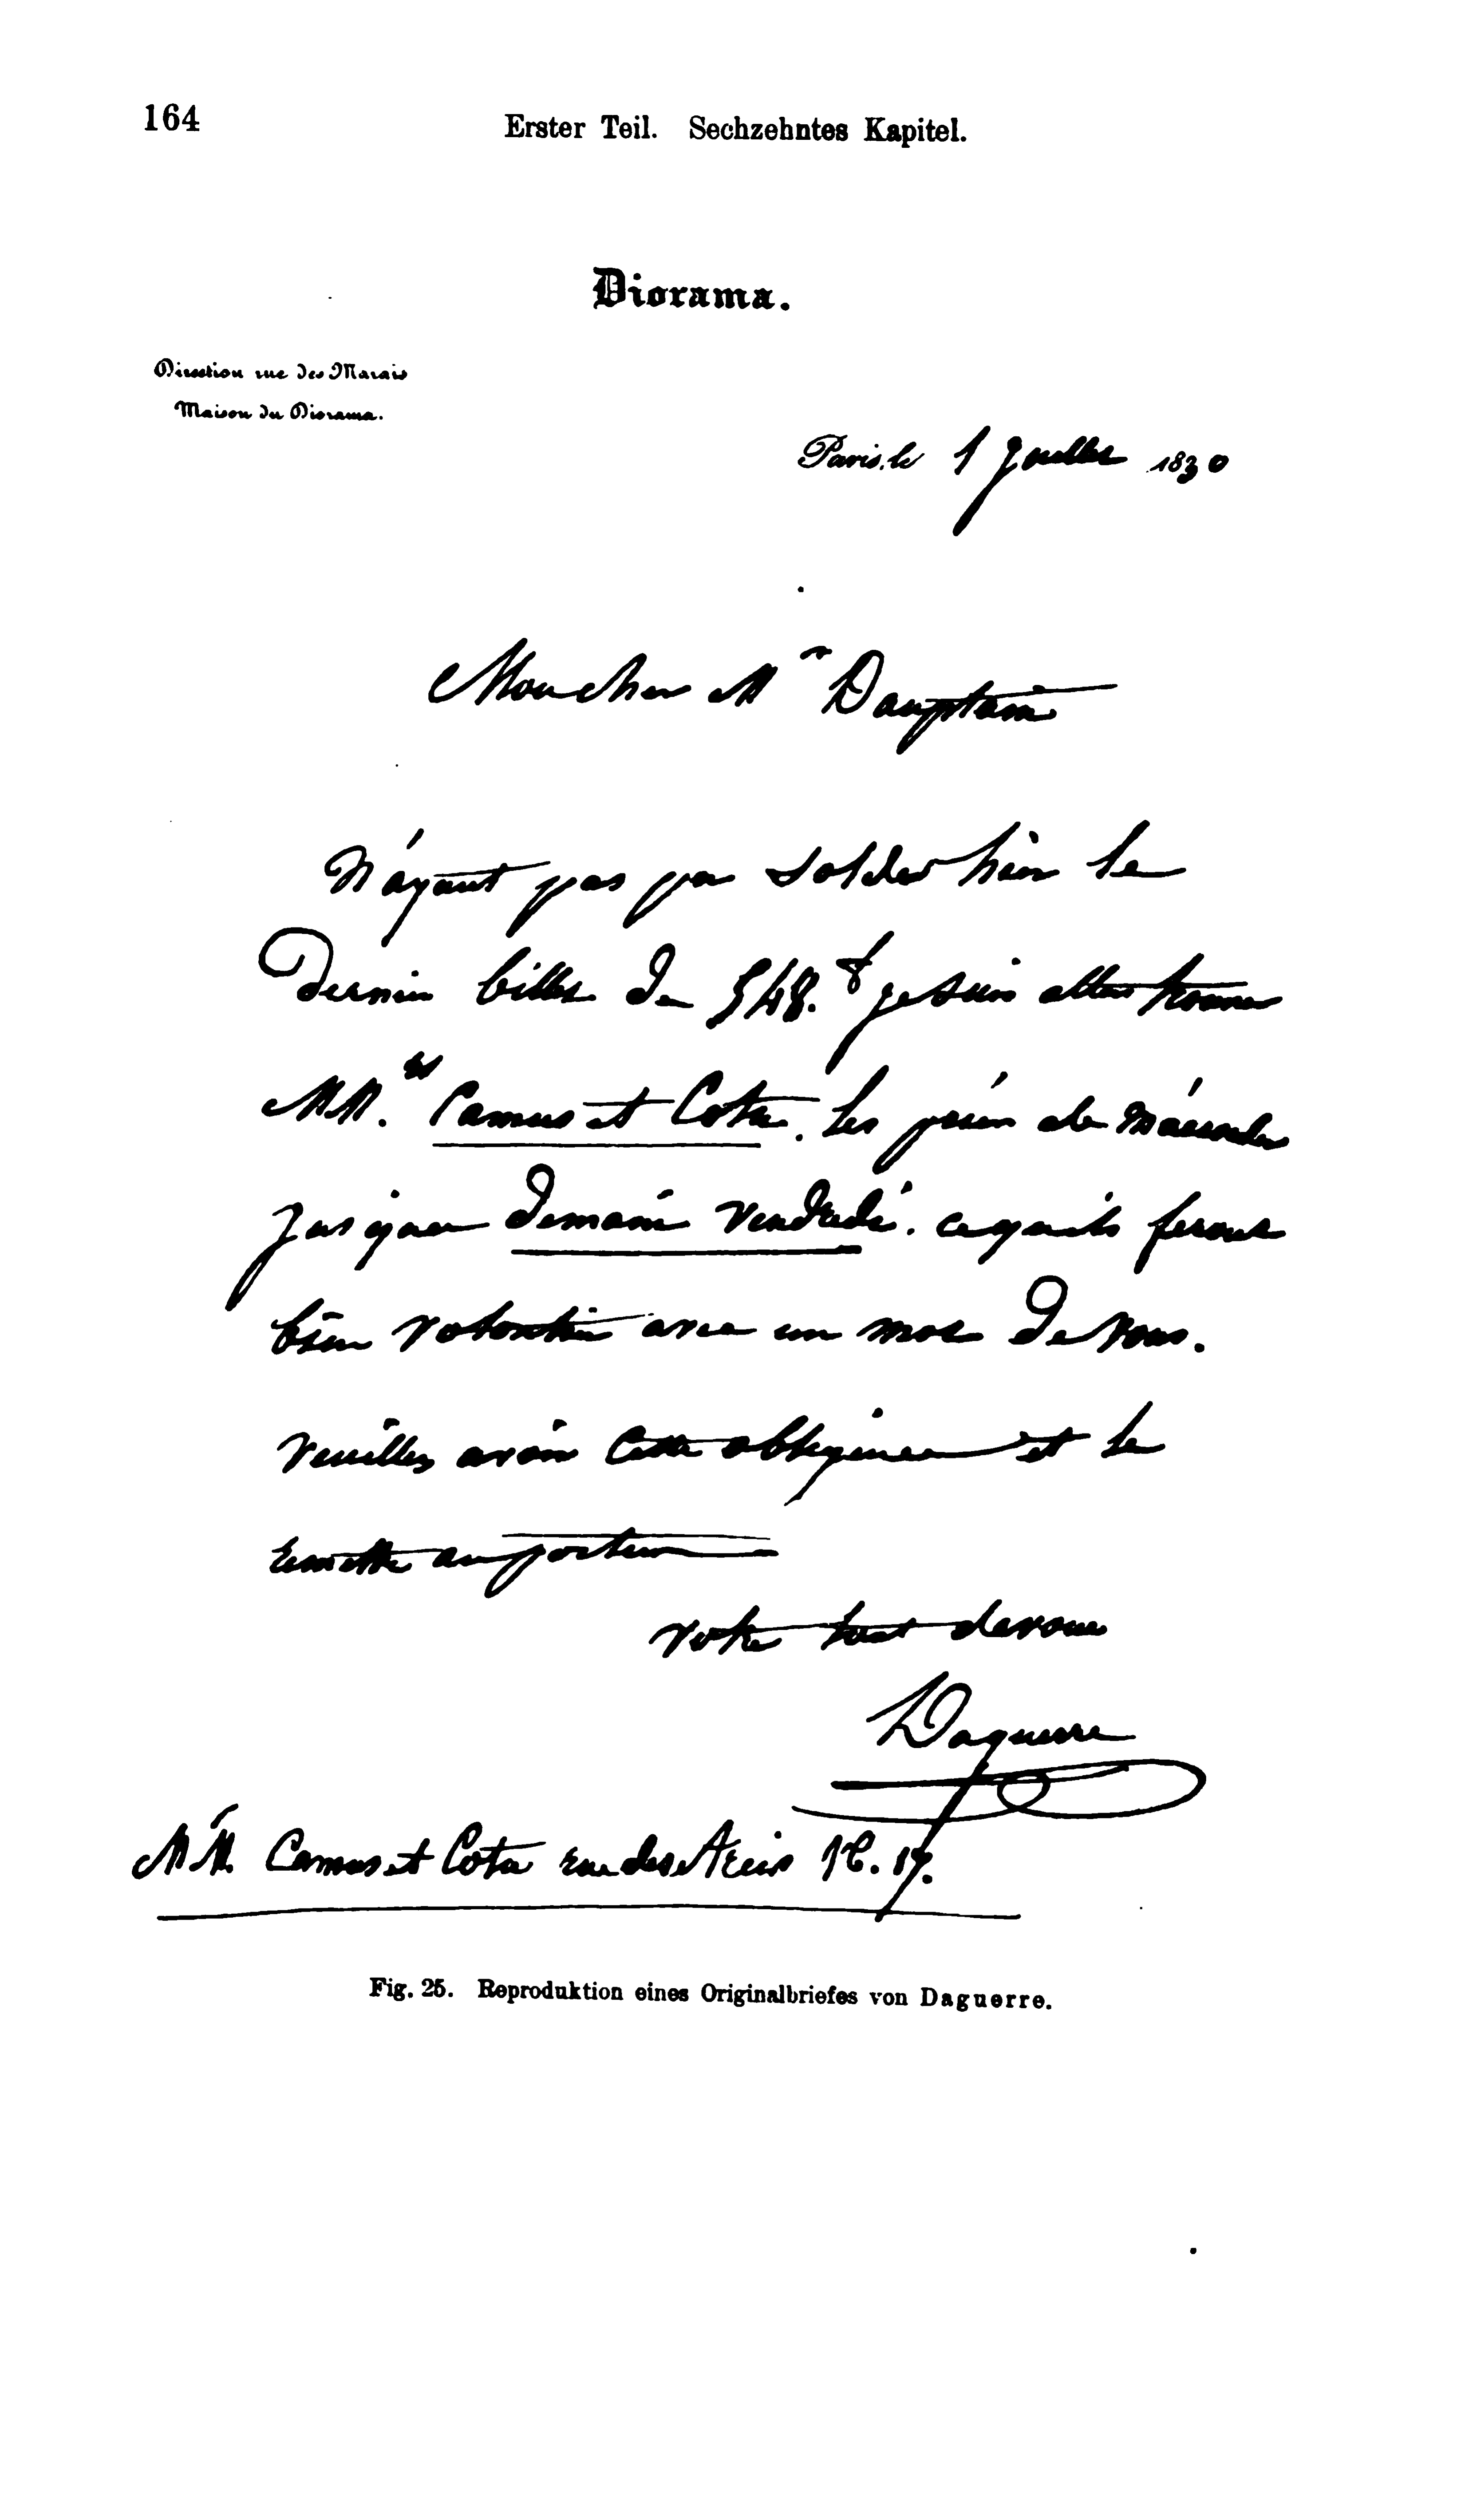 164
Erster Teil. Sechzehntes Kapitel.
Diorama.
Direction rue des Marais
Maison du Diorama.
Paris, le 1 Juillet 1830
Mon cher Mr
N'ayant pas pu solder hier le
Dernier billet de je suis aller trouver
MM. Camus et Cota. Les prier de n'assiender
pas que Demain vendredi. ce qu'ils ferons
bien volontier avec un mot De vous.
veuillez avoir Cette obligeance et le
remettre au porteur
votre tout devoué
Daguerre
MM. Camus et Cota rue des No. 17.
Fig. 25. Reproduktion eines Originalbriefes von Daguerre.